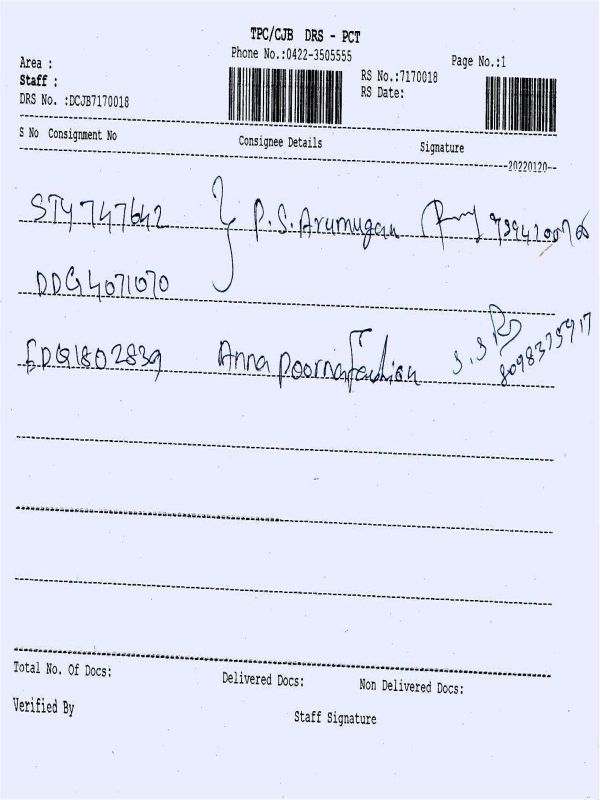 TPC/CJB DRS - PCT
Phone No.:0422-3505555
Page No.:1
Area :
Staff :
RS No.:7170018
RS Date:
DRS No. :DCJB7170018
S No Consignment No Consignee Details Signature
20220120
STY747642 P.S.Arumugam
DDG4071070
Anna Poorna Fashion S.S.
8098375917
Total No. Of Docs: Delivered Docs: Non Delivered Docs:
Verified By Staff Signature